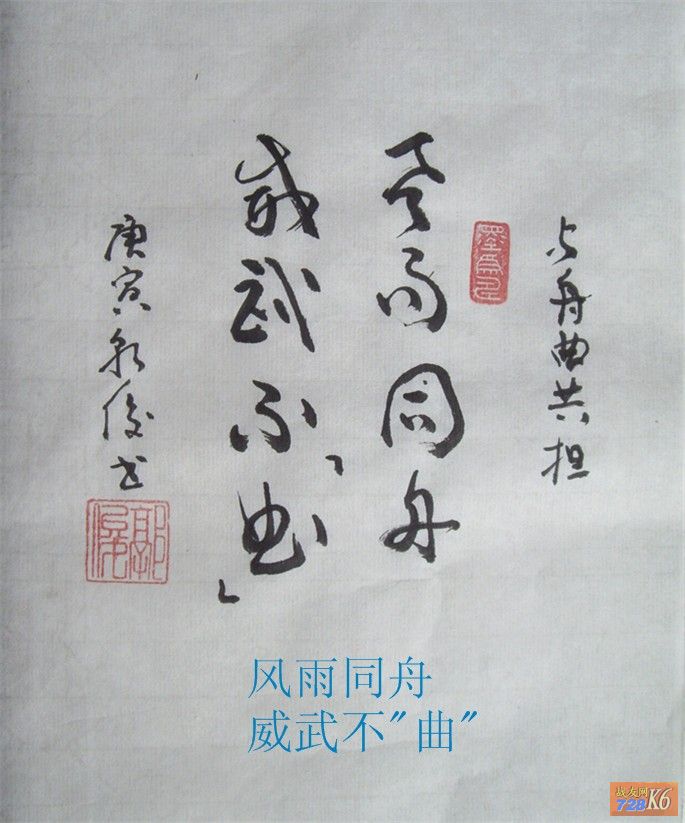 与舟曲共担
风雨同舟
威武不「曲」
庚寅永俊书
风雨同舟
威武不"曲"
战友网
728K6